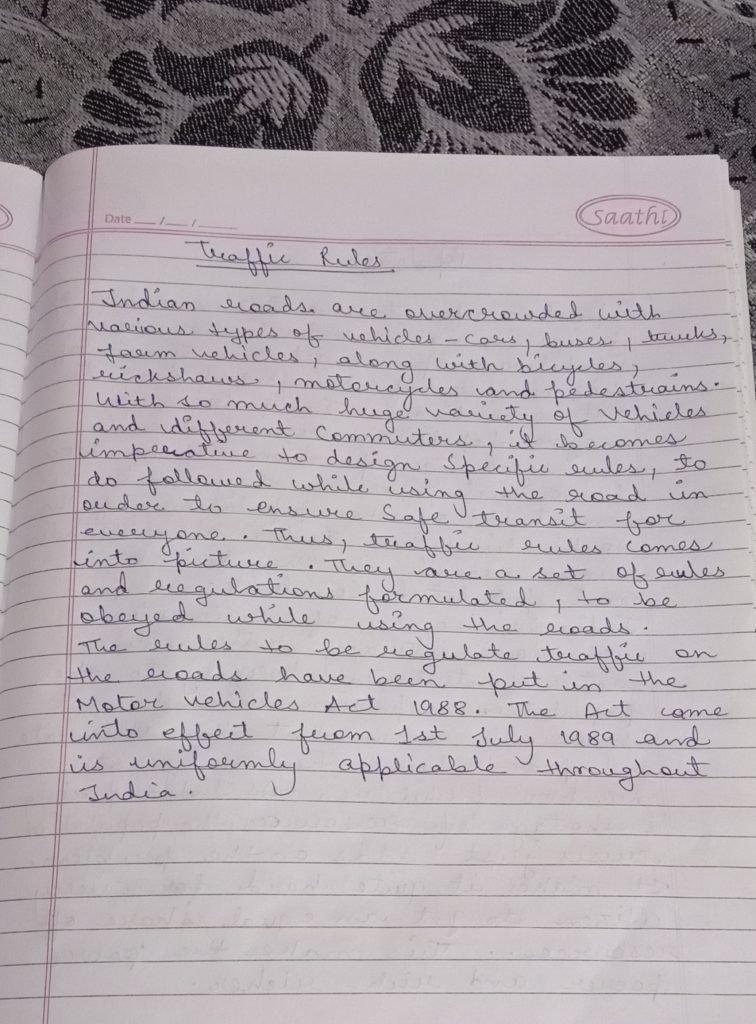 Date __/__/____
Saathi
Traffic Rules
Indian roads. are overcrowded with
various types of vehicles - cars, buses, trucks,
farm vehicles, along with bicycles,
rickshaws, motorcycles and pedestrains.
With so much huge variety of vehicles
and different commuters, it becomes
imperative to design specific rules, to
do followed while using the road in
order to ensure safe transit for
everyone. Thus, traffic rules comes
into picture. They are a set of rules
and regulations formulated, to be
obeyed while using the roads.
The rules to be regulate traffic on
the roads have been put in the
Motor vehicles Act 1988. The Act came
into effect from 1st July 1989 and
is uniformly applicable throughout
India.